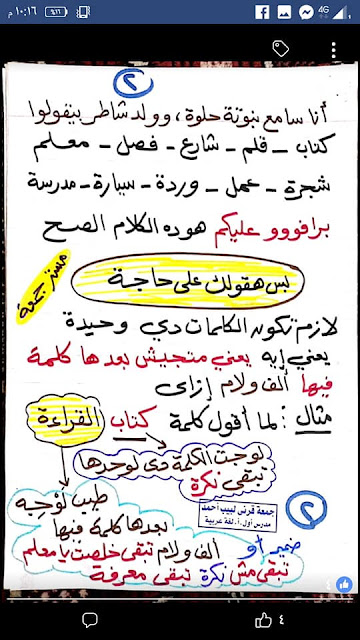 ١٠:١٦ م
٪١٦
4G
٢
أنا سامع بنوتة حلوة، وولد شاطر بيقولوا
كتاب – قلم – شارع – فصل – معلم
شجرة – عمل – وردة – سيارة – مدرسة
برافووو عليكم هوده الكلام الصح
بس هقولك على حاجة
مستر جمعة
لازم تكون الكلمات دي وحيدة
يعني إيه يعني متجيش بعدها كلمة
فيها ألف ولام إزاى
مثال: لما أقول كلمة كتاب القراءة
لوجت الكلمة دى لوحدها
تبقى نكرة
طيب لوجه
بعدها كلمة فيها
ضمير أو ألف ولام تبقى خلصت يا معلم
تبقى مش نكرة تبقى معرفة
٢
جمعة قرني لبيب أحمد
مدرس أول أ. لغة عربية
٤